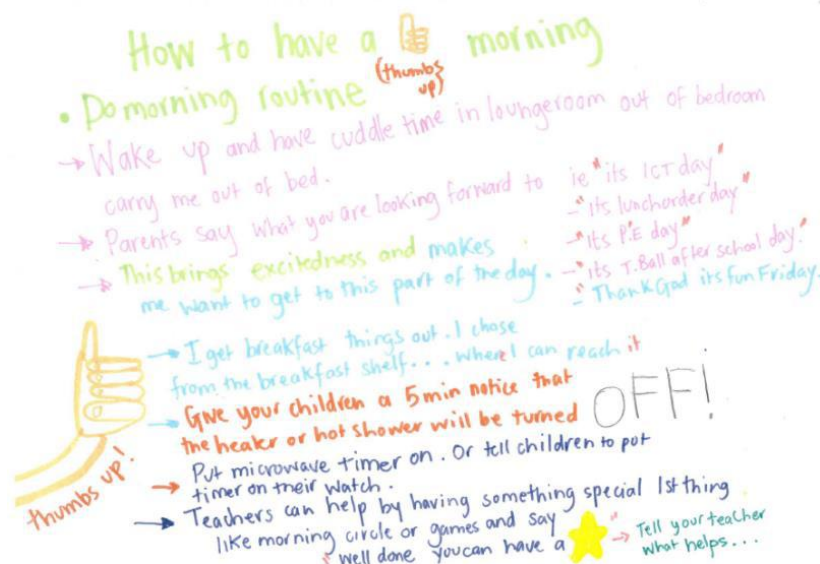 How to have a morning
(thumbs up)
• Do morning routine
→ Wake up and have cuddle time in loungeroom out of bedroom
carry me out of bed.
→ Parents say what you are looking forward to ie "its ICT day"
- "its lunchorder day"
- "Its P.E day"
- "its T.Ball after school day."
- "Thank God its fun Friday.
→ This brings excitedness and makes
me want to get to this part of the day.
→ I get breakfast things out. I chose
from the breakfast shelf... where I can reach it
→ Give your children a 5 min notice that
the heater or hot shower will be turned OFF!
Put microwave timer on. Or tell children to put
→ timer on their watch.
→ Teachers can help by having something special 1st thing
like morning circle or games and say
"well done you can have a "
→ Tell your teacher
what helps...
thumbs up!